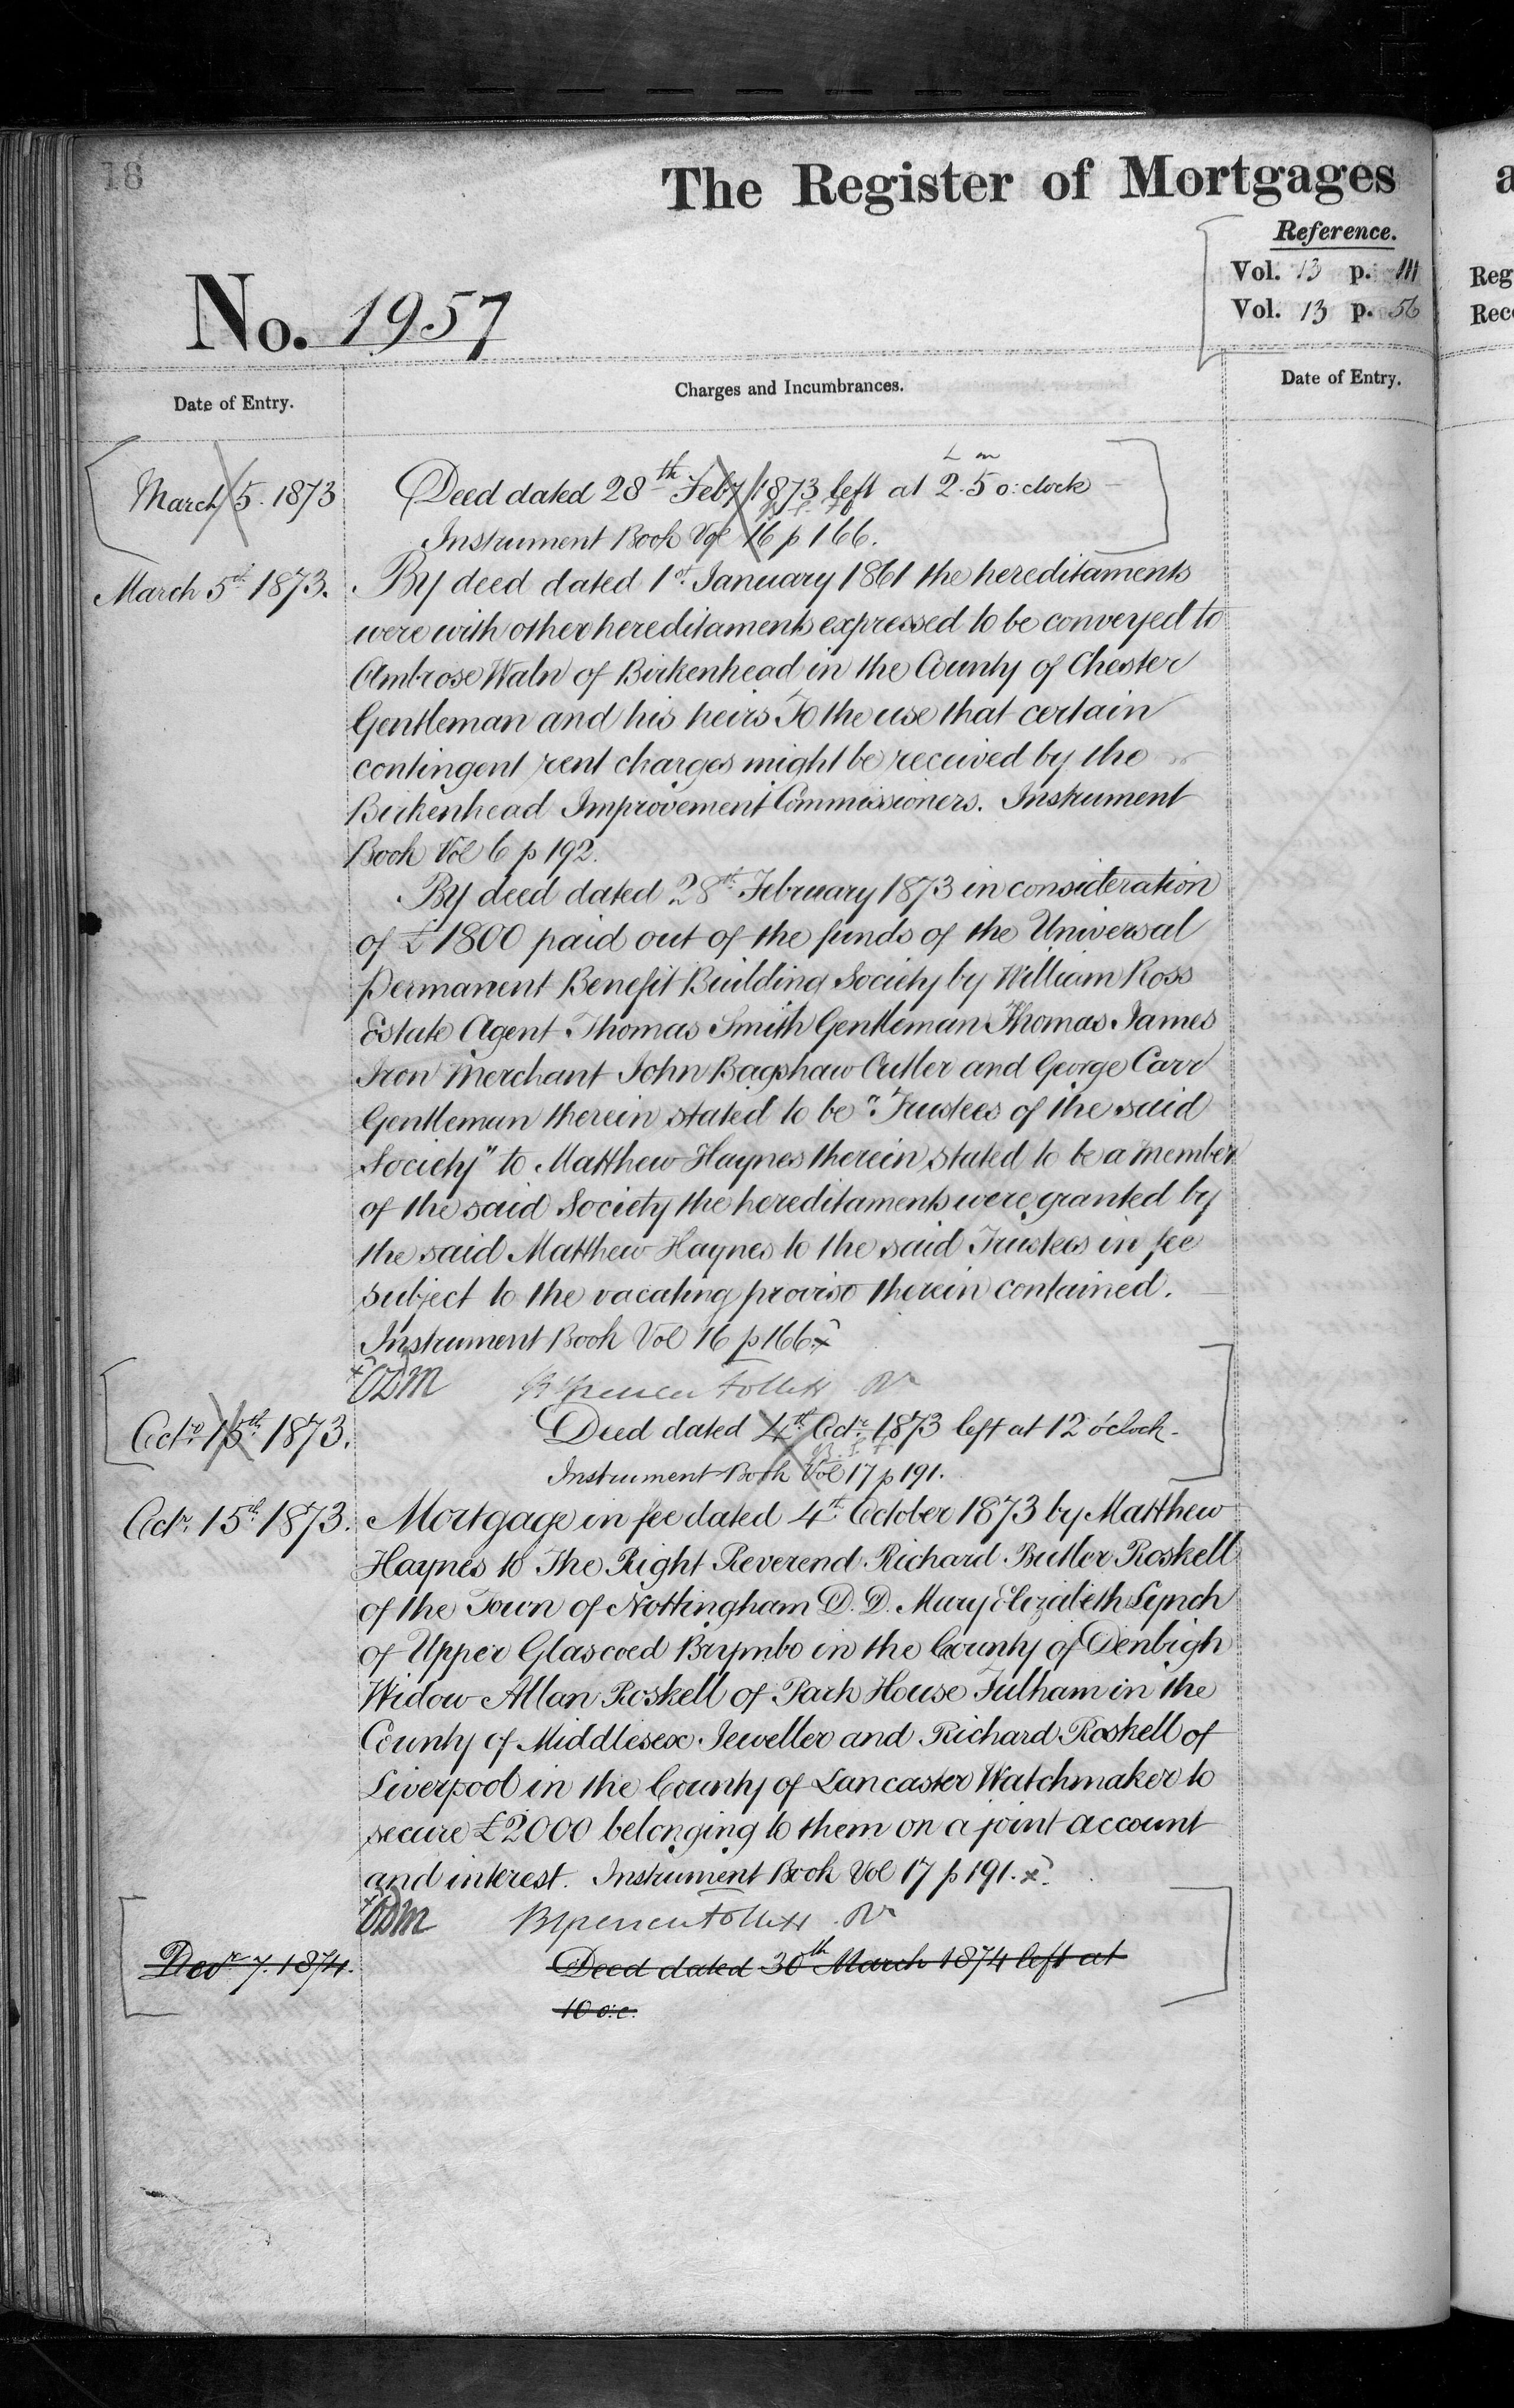 18
The Register of Mortgages
Reference.
Vol. 13 p. 111
Vol. 13 p. 56
No. 1957
Date of Entry.
Charges and Incumbrances.
Date of Entry.
March 5. 1873
Deed dated 28th Feby 1873 left at 2.5 o:clock
Instrument Book Vol 16 p 166.
March 5th 1873.
By deed dated 1st January 1861 the hereditaments
were with other hereditaments expressed to be conveyed to
Ambrose Waln of Birkenhead in the County of Chester
Gentleman and his heirs To the use that certain
contingent rent charges might be received by the
Birkenhead Improvement Commissioners. Instrument
Book Vol 6 p 192.
By deed dated 28th February 1873 in consideration
of £1800 paid out of the funds of the Universal
Permanent Benefit Building Society by William Ross
Estate Agent Thomas Smith Gentleman Thomas James
Iron Merchant John Bagshaw Cutler and George Carr
Gentleman therein stated to be "Trustees of the said
Society" to Matthew Haynes therein stated to be a member
of the said Society the hereditaments were granted by
the said Matthew Haynes to the said Trustees in fee
subject to the vacating proviso therein contained.
Instrument Book Vol 16 p 166 x
Octr 15th 1873.
Deed dated 4th Octr 1873 left at 12 o'clock.
Instrument Book Vol 17 p 191.
Octr 15th 1873.
Mortgage in fee dated 4th October 1873 by Matthew
Haynes to The Right Reverend Richard Butler Roskell
of the Town of Nottingham D.D. Mary Elizabeth Lynch
of Upper Glascoed Brymbo in the County of Denbigh
Widow Allan Roskell of Park House Fulham in the
County of Middlesex Jeweller and Richard Roskell of
Liverpool in the County of Lancaster Watchmaker to
secure £2000 belonging to them on a joint account
and interest. Instrument Book Vol 17 p 191. x
Decr 7. 1874.
Deed dated 30th March 1874 left at
10 o:c.
a
Reg
Rec